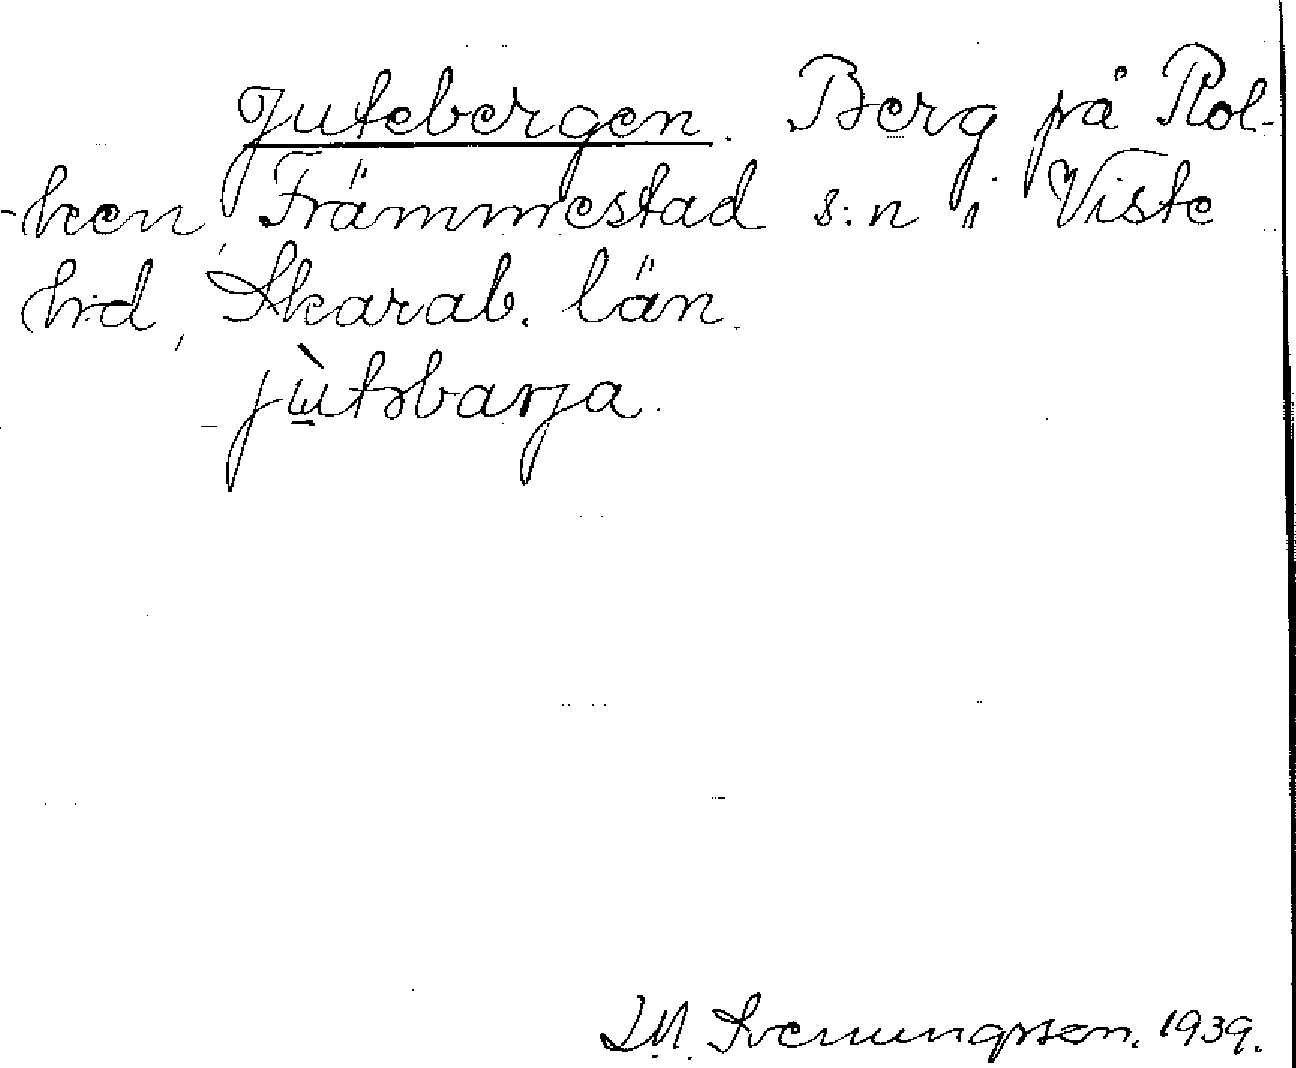 Jutebergen. Berg på Rol-
-ken, Främmestad s:n i Viste
hd, Skarab. län.
jùtəbarja.
I.M. Svenungsson. 1939.